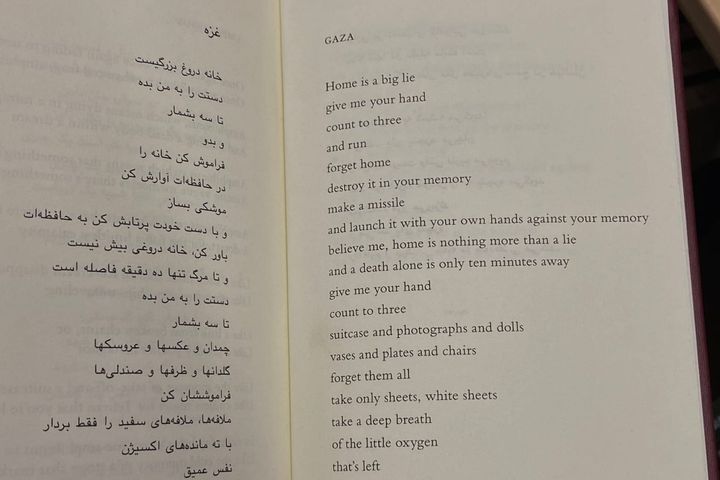 غزه
خانه دروغ بزرگیست
دستت را به من بده
تا سه بشمار
و بدو
فراموش کن خانه را
در حافظه‌ات آوارش کن
موشکی بساز
و با دست خودت پرتابش کن به حافظه‌ات
باور کن، خانه دروغی بیش نیست
و تا مرگ تنها ده دقیقه فاصله است
دستت را به من بده
تا سه بشمار
چمدان و عکسها و عروسکها
گلدانها و ظرفها و صندلی‌ها
فراموششان کن
ملافه‌ها، ملافه‌های سفید را فقط بردار
با ته مانده‌های اکسیژن
نفس عمیق
GAZA
Home is a big lie
give me your hand
count to three
and run
forget home
destroy it in your memory
make a missile
and launch it with your own hands against your memory
believe me, home is nothing more than a lie
and a death alone is only ten minutes away
give me your hand
count to three
suitcase and photographs and dolls
vases and plates and chairs
forget them all
take only sheets, white sheets
take a deep breath
of the little oxygen
that's left